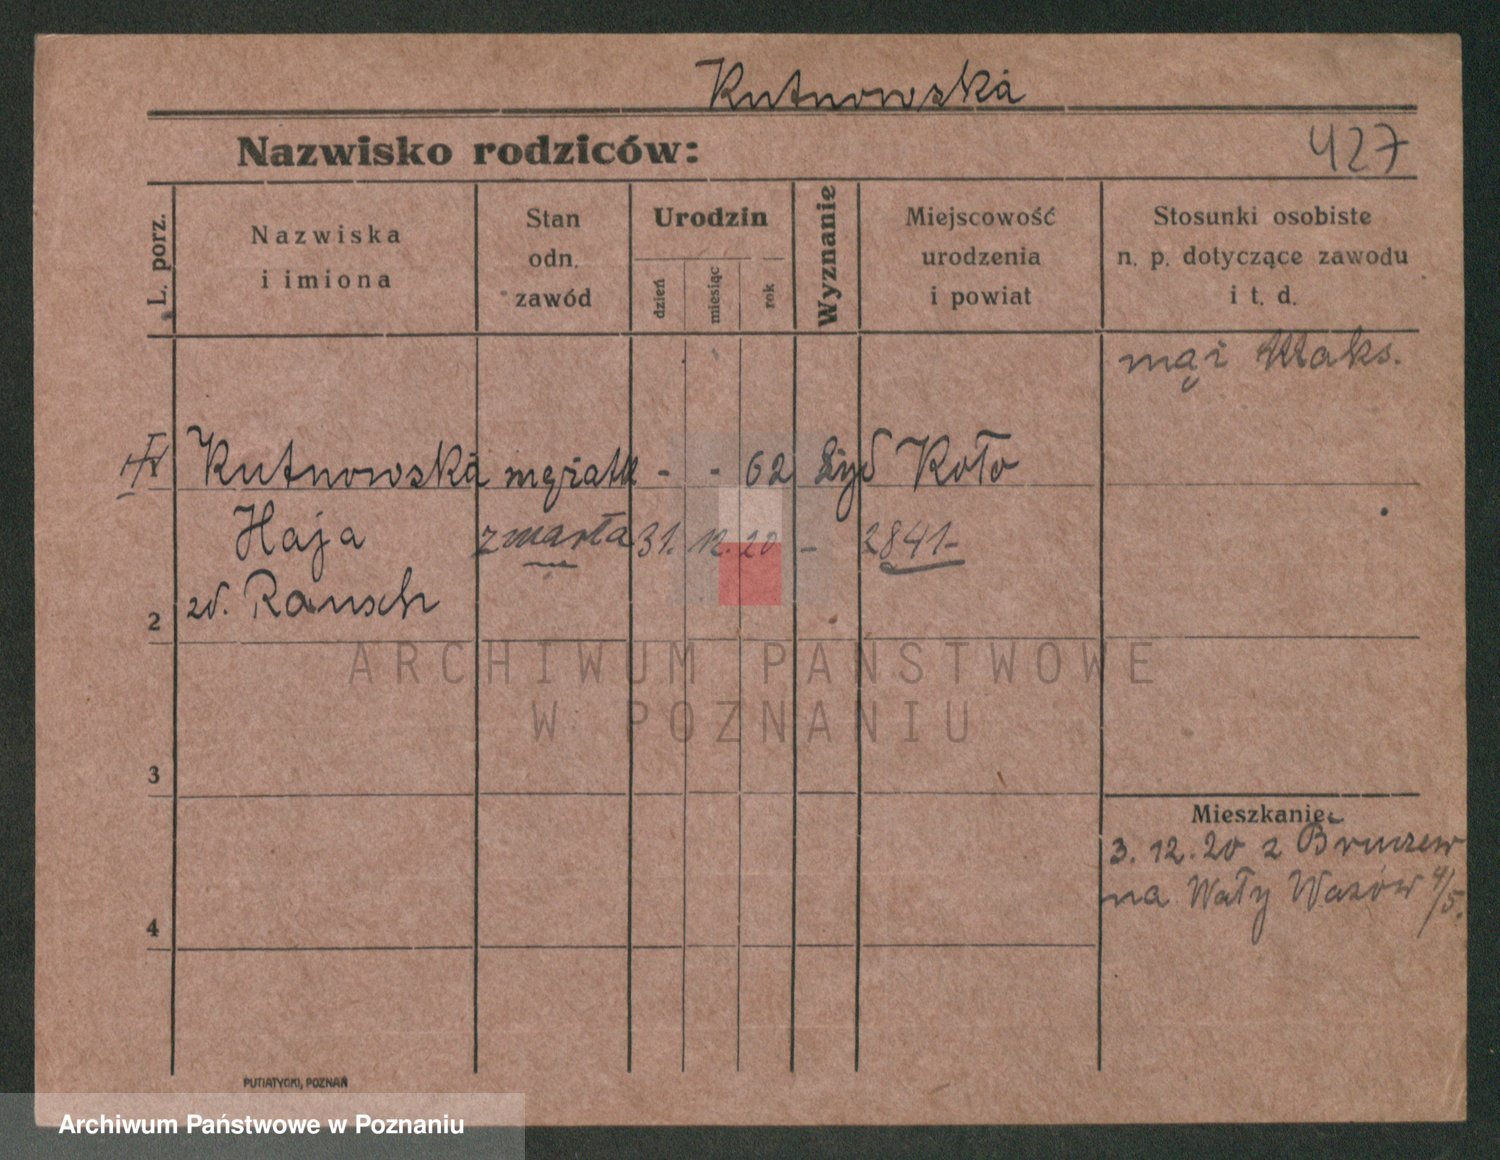 Kutnowska
Nazwisko rodziców:
427
L. porz.
Nazwiska
i imiona
Stan
odn.
zawód
Urodzin
dzień
miesiąc
rok
Wyznanie
Miejscowość
urodzenia
i powiat
Stosunki osobiste
n. p. dotyczące zawodu
i t. d.
mąż Maks.
Kutnowska mężatk - - 62 żyd Koło
Haja zmarła 31. 12. 20 - 2841-
zd. Rausch
2
ARCHIWUM PAŃSTWOWE
W POZNANIU
3
Mieszkanie:
3. 12. 20 z Bruczew
na Wały Wazów 4/5.
4
PUTIATYCKI, POZNAŃ
Archiwum Państwowe w Poznaniu